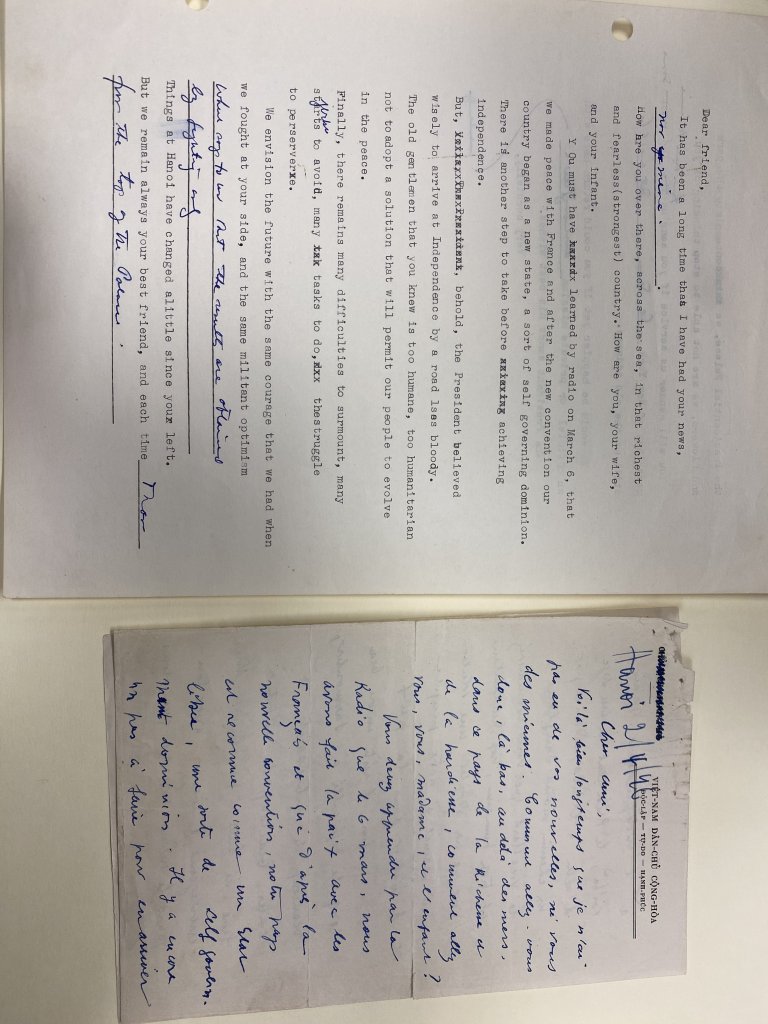 Dear friend.
It has been a long time thas I have had your news,
nor of mine.
How are you over there, across the sea, in that richest
and fearless(strongest) country. How are you, your wife,
and your infant.
Y On must have learned by radio on March 6, that
we made peace with France and after the new convention our
country began as a new state, a sort of self governing dominion.
There is another step to take before achieving
independence.
But, behold, the President believed
wisely to arrive at Independence by a road lses bloody.
The old gentlemen that you knew is too humane, too humanitarian
not to adopt a solution that will permit our people to evolve
in the peace.
Finally, there remains many difficulties to surmount, many
to avoid, many tasks to do, thestruggle
to perserverxe.
We envision the future with the same courage that we had when
we fought at your side, and the same militant optimism
what says to us that the results are obtained
by fighting only
Things at Hanoi have changed alittle since your left.
But we remain always your best friend, and each time
from the top of the
VIỆT-NAM DÂN-CHỦ CỘNG-HÒA
ĐỘC-LẬP — TỰ-DO — HẠNH-PHÚC
Hanoi 2/4/46
Cher ami,
Voilà bien longtemps que je n'ai
pas eu de vos nouvelles, ni vous
des miennes. Comment allez-vous
donc, là bas, au delà des mers,
dans ce pays de la Richesse et
de la hardiesse, comment allez
vous, vous, madame, et l'enfant ?
Vous devez apprendre par la
Radio que le 6 mars, nous
avons fait la paix avec les
Français et que d'après la
nouvelle convention, notre pays
est reconnu comme un Etat
libre, une sorte de self govern.
dominion. Il y a encore
un pas à faire pour en arriver